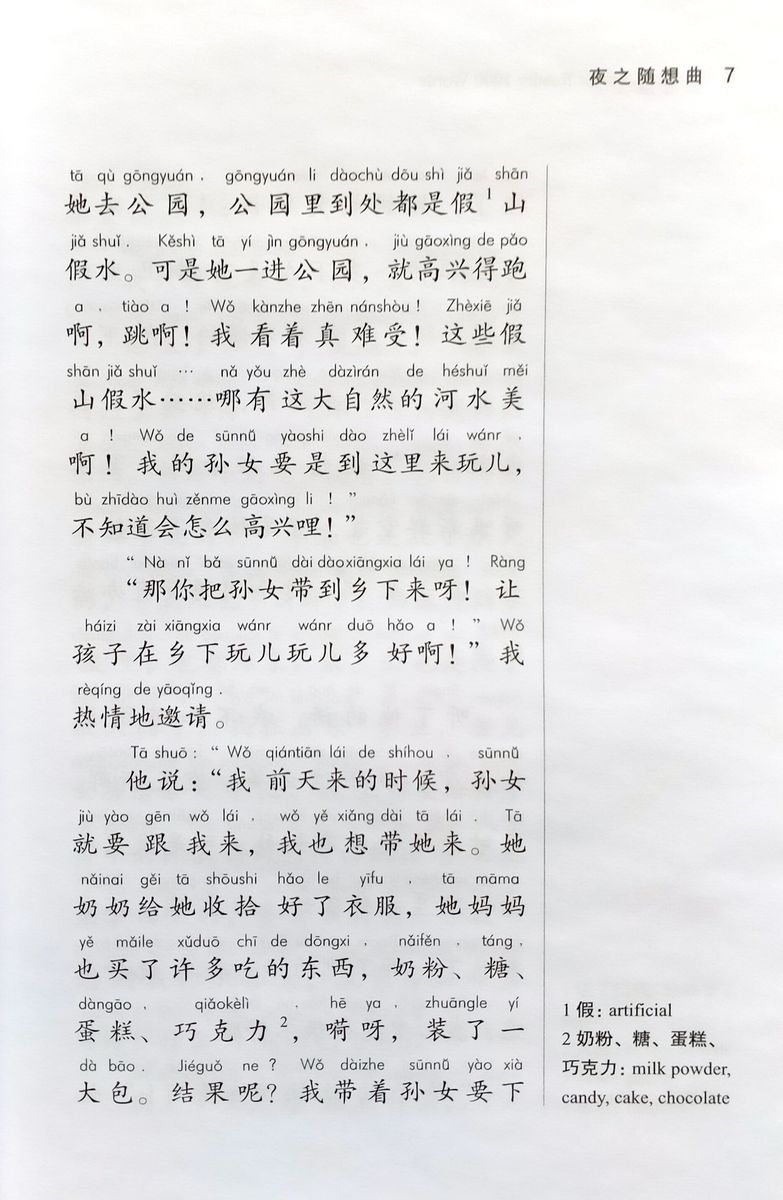 夜之随想曲 7
tā qù gōngyuán, gōngyuán li dàochù dōu shì jiǎ shān
她去公园，公园里到处都是假1山
jiǎ shuǐ. Kěshì tā yí jìn gōngyuán, jiù gāoxìng de pǎo
假水。可是她一进公园，就高兴得跑
a, tiào a! Wǒ kànzhe zhēn nánshòu! Zhèxiē jiǎ
啊，跳啊！我看着真难受！这些假
shān jiǎ shuǐ … nǎ yǒu zhè dàzìrán de héshuǐ měi
山假水……哪有这大自然的河水美
a! Wǒ de sūnnǚ yàoshi dào zhèlǐ lái wánr,
啊！我的孙女要是到这里来玩儿，
bù zhīdào huì zěnme gāoxìng li!”
不知道会怎么高兴哩！”
“Nà nǐ bǎ sūnnǚ dài dào xiāngxia lái ya! Ràng
“那你把孙女带到乡下来呀！让
háizi zài xiāngxia wánr wánr duō hǎo a!” Wǒ
孩子在乡下玩儿玩儿多好啊！”我
rèqíng de yāoqǐng.
热情地邀请。
Tā shuō: “Wǒ qiántiān lái de shíhou, sūnnǚ
他说：“我前天来的时候，孙女
jiù yào gēn wǒ lái, wǒ yě xiǎng dài tā lái. Tā
就要跟我来，我也想带她来。她
nǎinai gěi tā shōushi hǎo le yīfu, tā māma
奶奶给她收拾好了衣服，她妈妈
yě mǎile xǔduō chī de dōngxi, nǎifěn, táng,
也买了许多吃的东西，奶粉、糖、
dàngāo, qiǎokèlì, hē ya, zhuāngle yí
蛋糕、巧克力2，嗬呀，装了一
dà bāo. Jiéguǒ ne? Wǒ dàizhe sūnnǚ yào xià
大包。结果呢？我带着孙女要下
1 假: artificial
2 奶粉、糖、蛋糕、
巧克力: milk powder,
candy, cake, chocolate